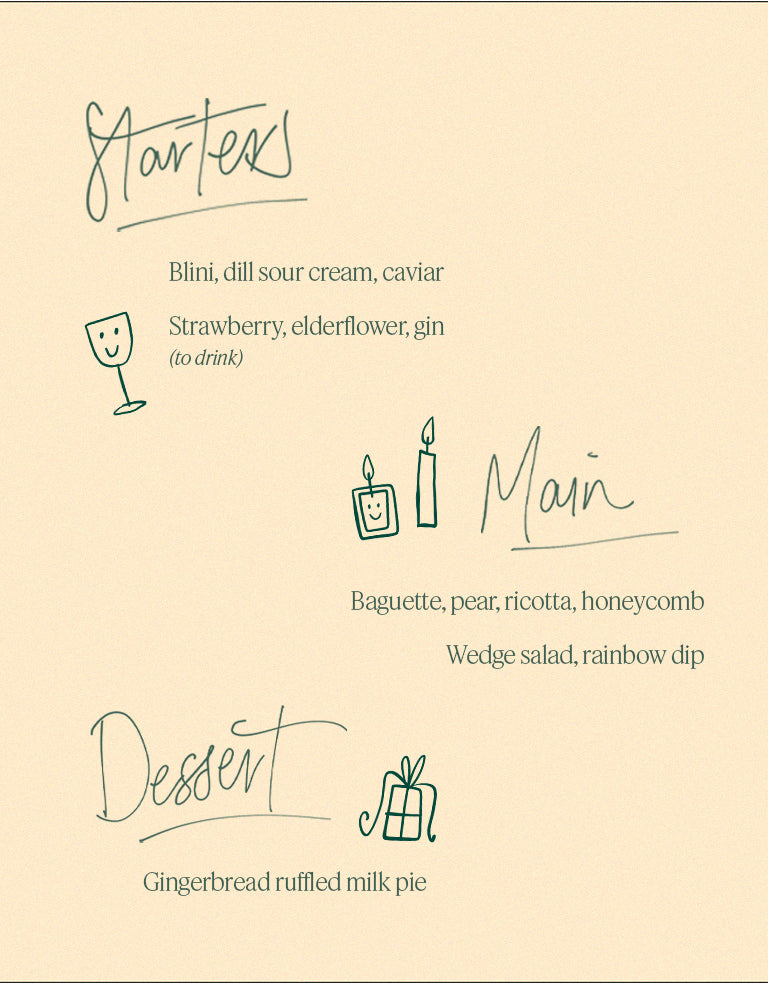 Starters
Blini, dill sour cream, caviar
Strawberry, elderflower, gin
(to drink)
Main
Baguette, pear, ricotta, honeycomb
Wedge salad, rainbow dip
Dessert
Gingerbread ruffled milk pie